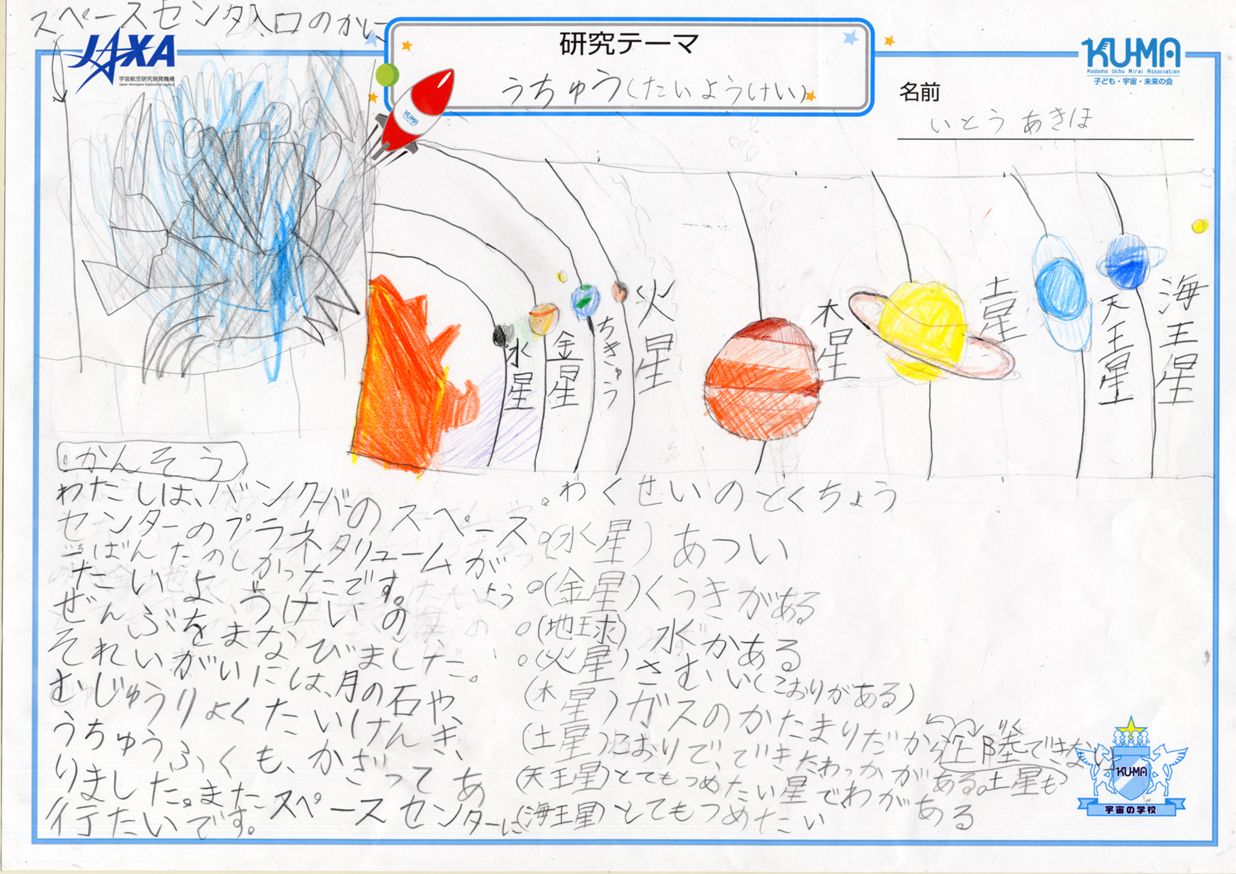 スペースセンタ入口のかに
JAXA
宇宙航空研究開発機構
Japan Aerospace Exploration Agency
研究テーマ
うちゅう(たいようけい)
KUMA
KUMA
Kodomo Uchu Mirai Association
子ども・宇宙・未来の会
名前
いとう あきほ
水星
金星
ちきゅう
火星
木星
土星
天王星
海王星
かんそう
わたしは、バンクーバーの
スペース
センターのプラネタリュームが
いちばんたのしかったです。
たいようけいの
ぜんぶをまなびました。
それいがいには、月の石や、
むじゅうりょくたいけんき、
うちゅうふくも、かざってあ
りました。またスペースセンターに
行たいです。
。わくせいのとくちょう
。(水星)あつい
。(金星)くうきがある
。(地球)水がある
。(火星)さむい(こおりがある)
(木星)ガスのかたまりだから
りく
陸できない
土星も
(土星)こおりで、できたわっかがある。
(天王星)とてもつめたい星でわがある
(海王星)とてもつめたい
KUMA
宇宙の学校